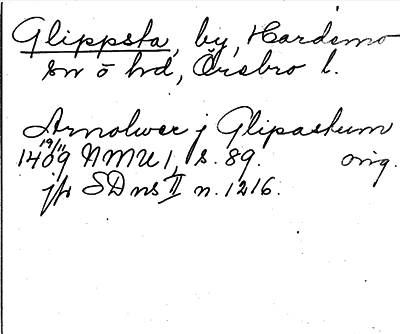 Glippsta, by, Hardemo
sn o hd, Örebro l.
Arnolwer j Glipastum
19/11
1409 NMU 1, s. 89. orig.
jfr SDns II n. 1216.